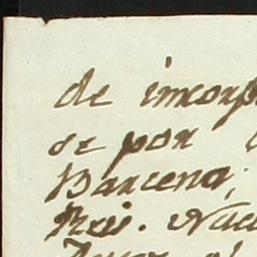 de incorp
se por
Barcena;
Reis. Nac